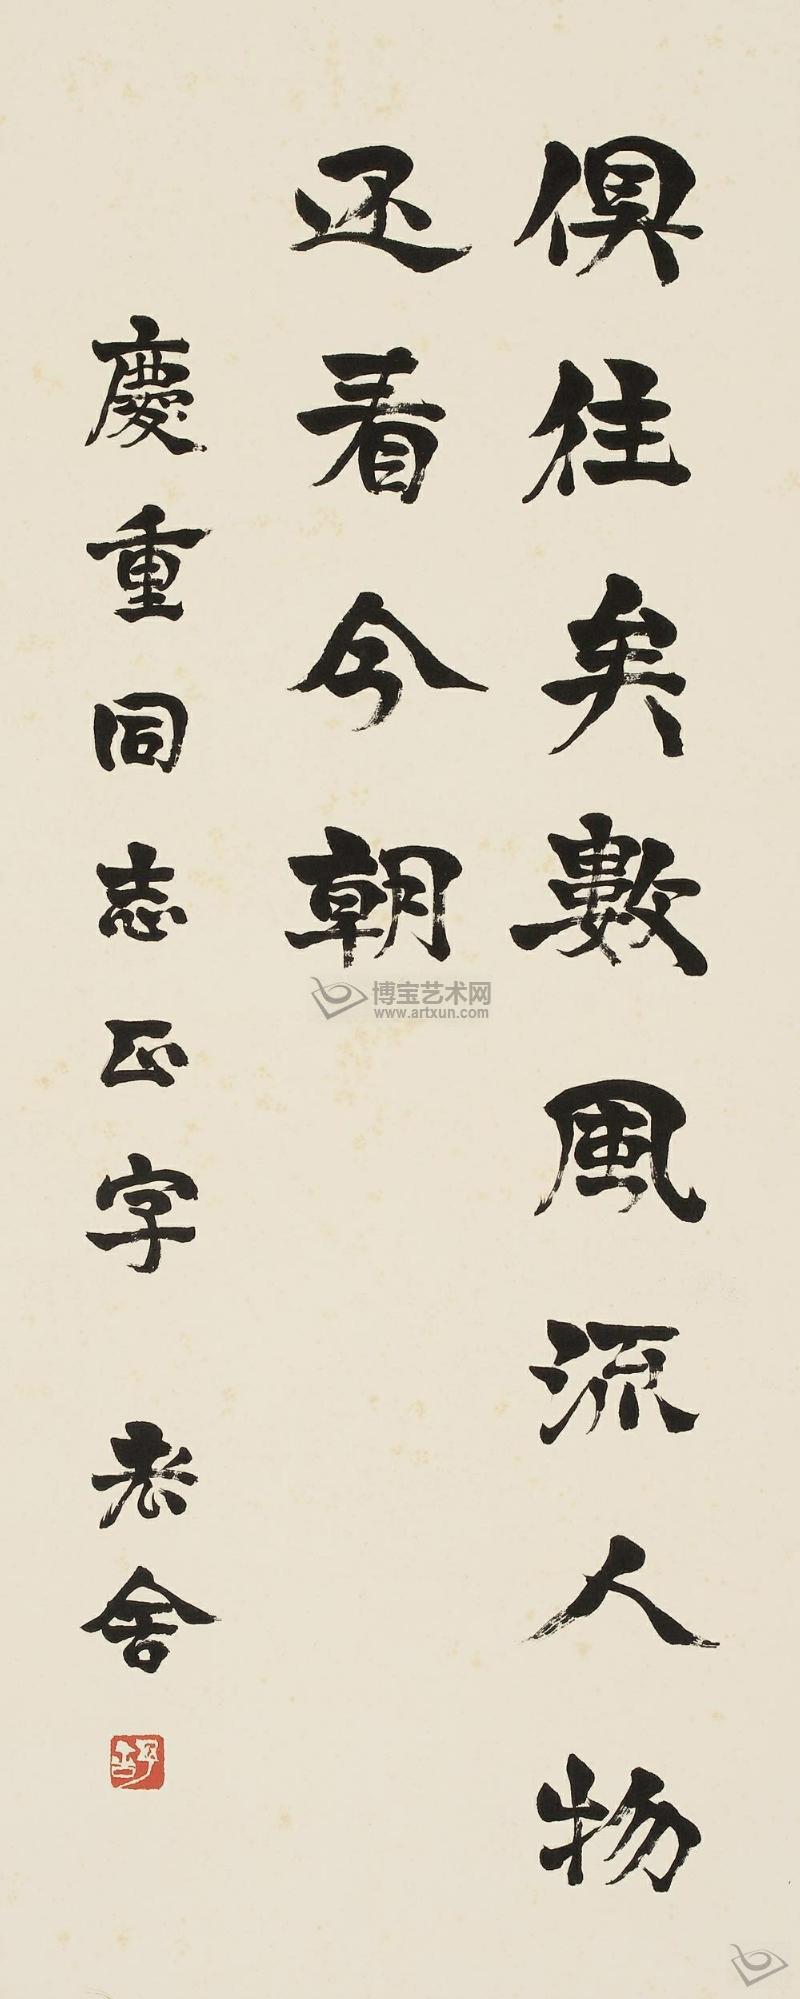 俱往矣數風流人物
还看今朝
慶重同志正字 老舍
舒
博宝艺术网
www.artxun.com